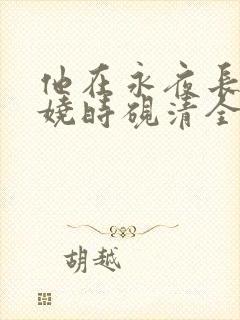 他在永夜長
嬈時硯清全
胡越